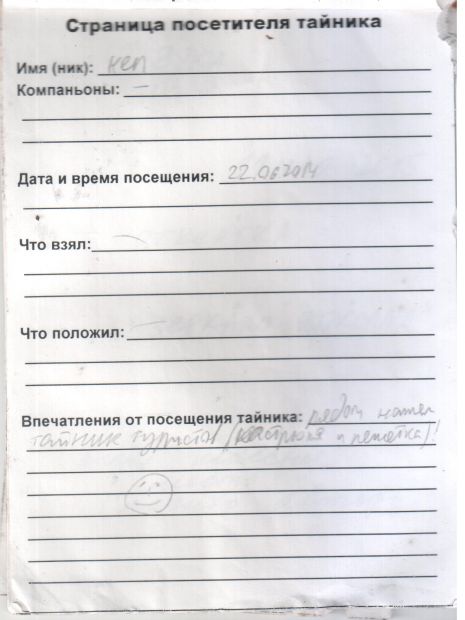 Страница посетителя тайника
Имя (ник): кеп
Компаньоны: —
Дата и время посещения: 22.06 2014
Что взял: —
Что положил: —
Впечатления от посещения тайника: рядом нашел
тайник туристов (кастрюля и решётка)!